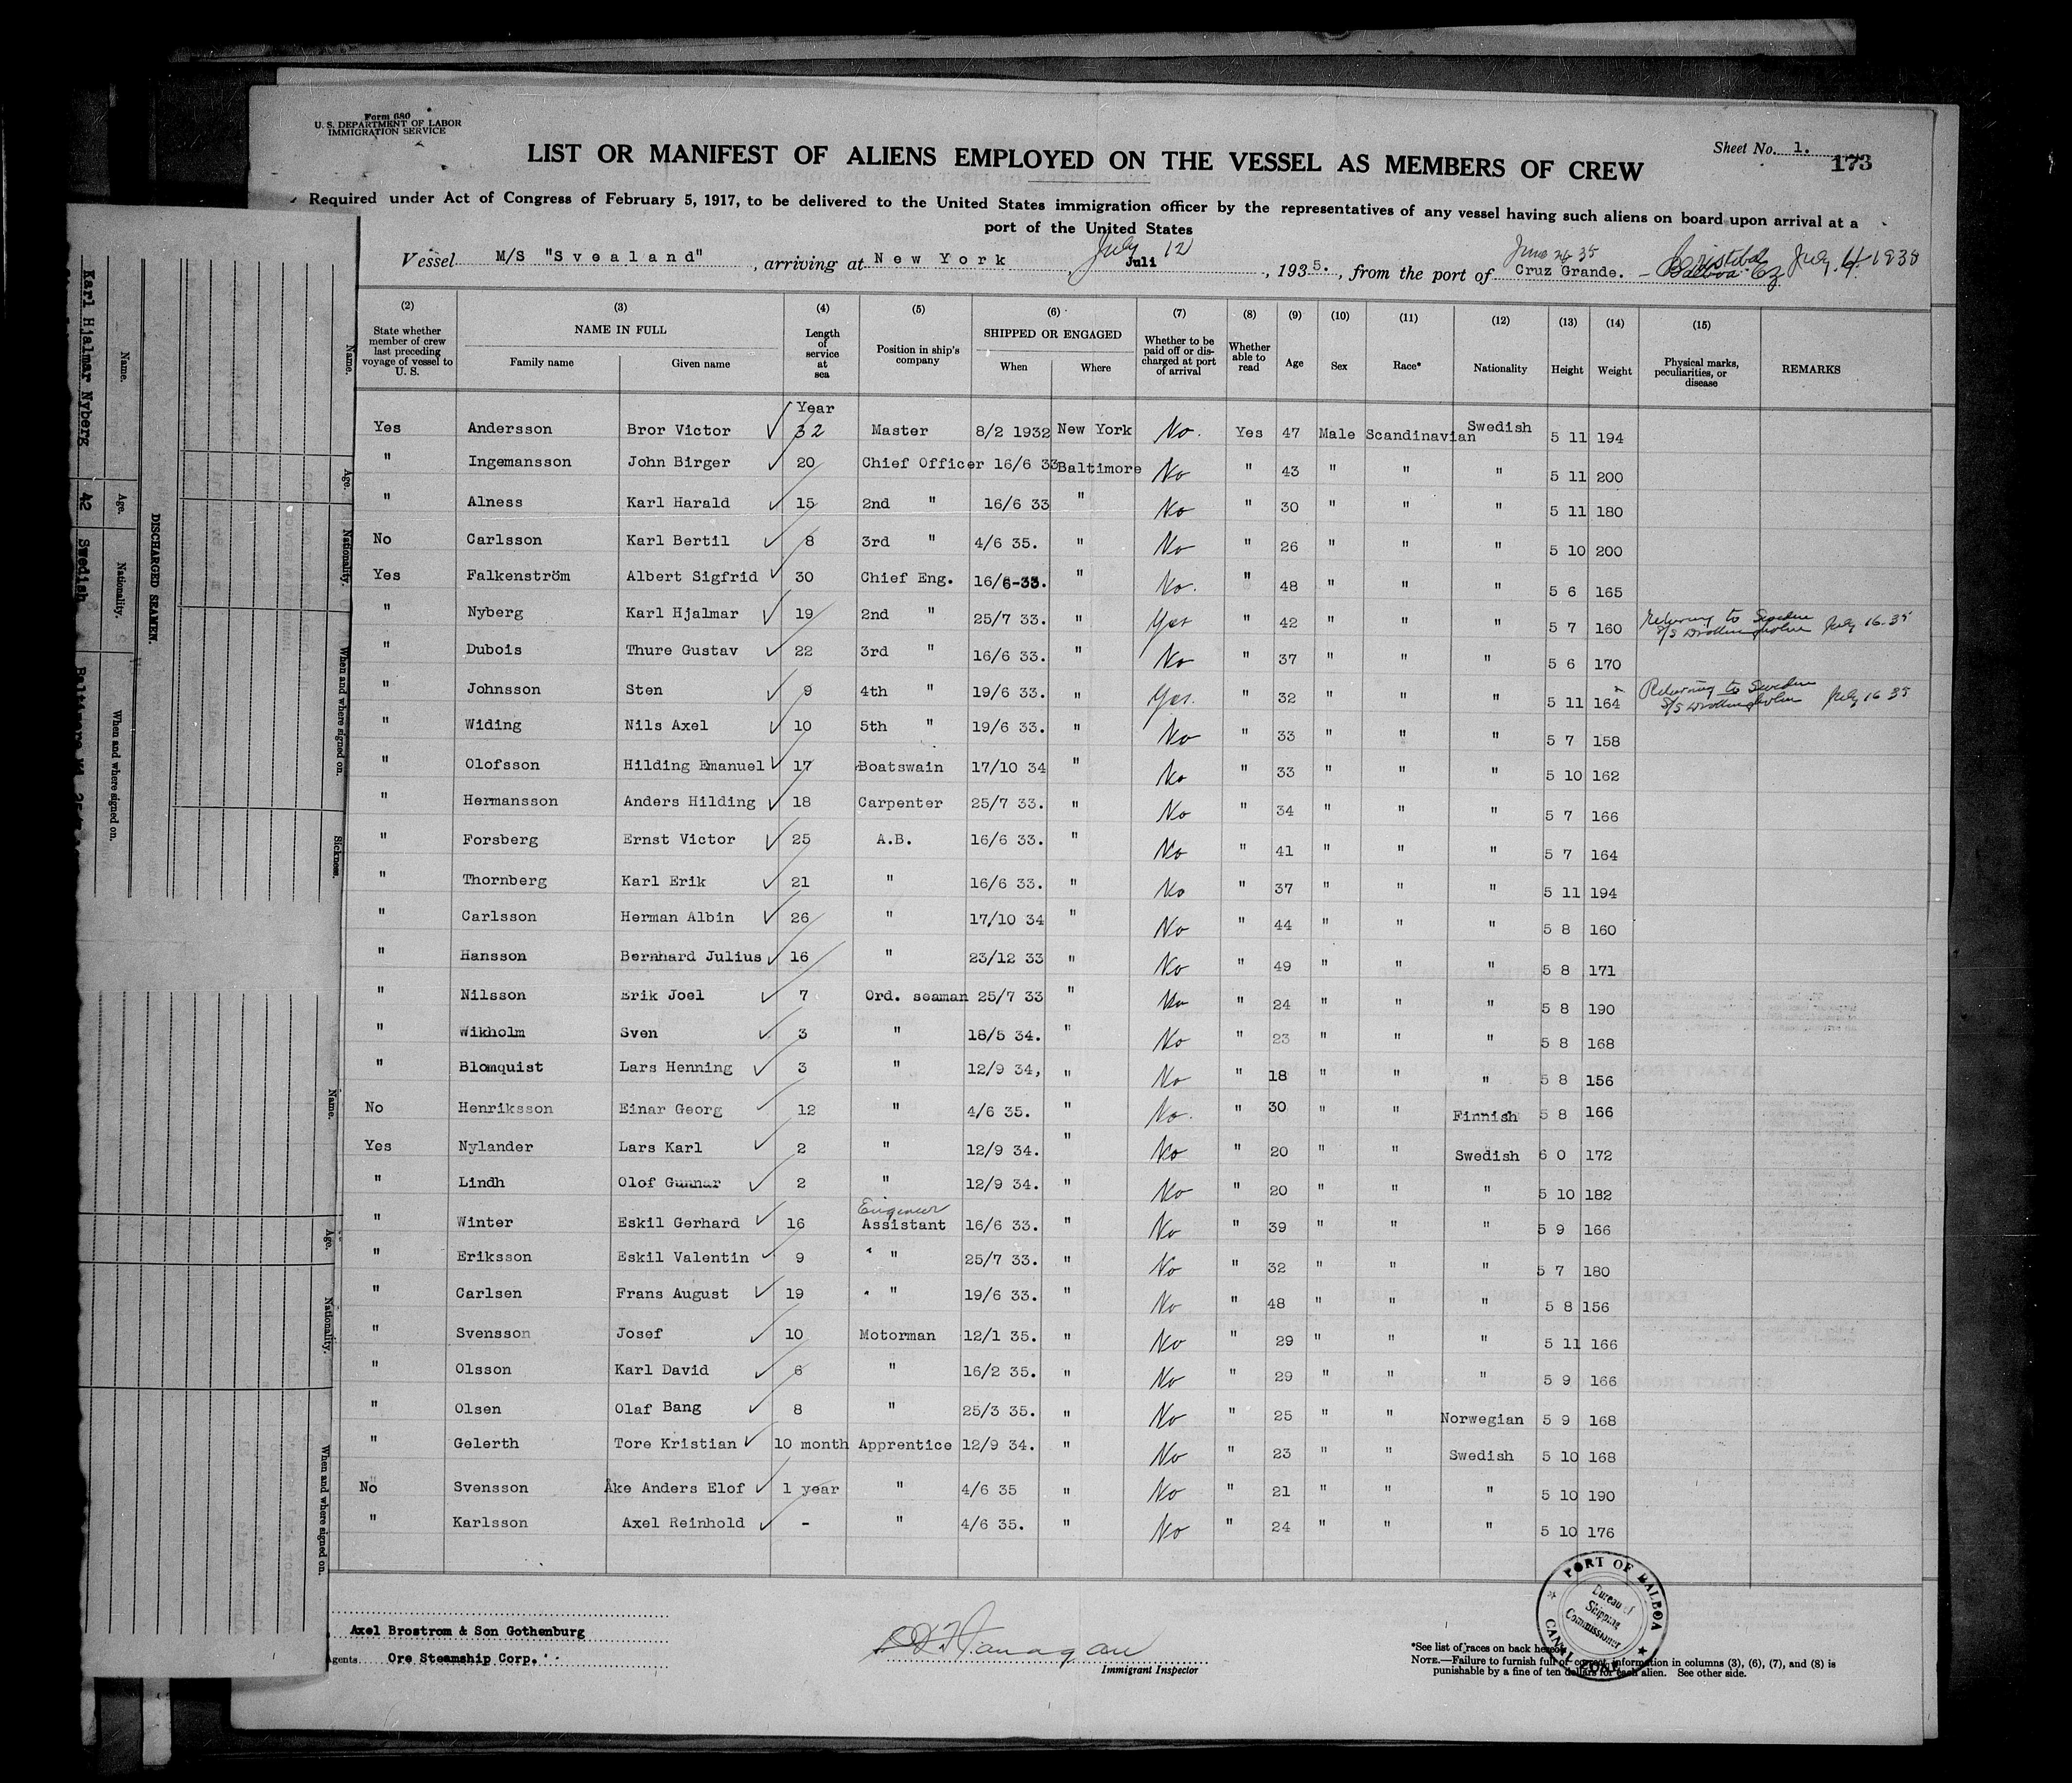 Form 680
U. S. DEPARTMENT OF LABOR
IMMIGRATION SERVICE
Sheet No. 1.
173
LIST OR MANIFEST OF ALIENS EMPLOYED ON THE VESSEL AS MEMBERS OF CREW
Required under Act of Congress of February 5, 1917, to be delivered to the United States immigration officer by the representatives of any vessel having such aliens on board upon arrival at a
port of the United States
July 12 June 26 35
Vessel M/S "Svealand", arriving at New York, Juli, 1935., from the port of Cruz Grande. - Cristobal July 4 1935
Balboa Cz
(2) (3) (4) (5) (6) (7) (8) (9) (10) (11) (12) (13) (14) (15)
State whether member of crew last preceding voyage of vessel to U. S. NAME IN FULL Family name Given name Length of service at sea Position in ship's company SHIPPED OR ENGAGED When Where Whether to be paid off or discharged at port of arrival Whether able to read Age Sex Race* Nationality Height Weight Physical marks, peculiarities, or disease REMARKS
Year
Yes Andersson Bror Victor 32 Master 8/2 1932 New York No. Yes 47 Male Scandinavian Swedish 5 11 194
" Ingemansson John Birger 20 Chief Officer 16/6 33 Baltimore No " 43 " " " 5 11 200
" Alness Karl Harald 15 2nd " 16/6 33 " No " 30 " " " 5 11 180
No Carlsson Karl Bertil 8 3rd " 4/6 35. " No " 26 " " " 5 10 200
Yes Falkenström Albert Sigfrid 30 Chief Eng. 16/6-33. " No. " 48 " " " 5 6 165
" Nyberg Karl Hjalmar 19 2nd " 25/7 33. " Yes " 42 " " " 5 7 160 Returning to Sweden S/S Drottningholm July 16-35
" Dubois Thure Gustav 22 3rd " 16/6 33. " No " 37 " " " 5 6 170
" Johnsson Sten 9 4th " 19/6 33. " Yes. " 32 " " " 5 11 164 Returning to Sweden S/S Drottningholm July 16 35
" Widing Nils Axel 10 5th " 19/6 33. " No " 33 " " " 5 7 158
" Olofsson Hilding Emanuel 17 Boatswain 17/10 34 " No " 33 " " " 5 10 162
" Hermansson Anders Hilding 18 Carpenter 25/7 33. " No " 34 " " " 5 7 166
" Forsberg Ernst Victor 25 A.B. 16/6 33. " No " 41 " " " 5 7 164
" Thornberg Karl Erik 21 " 16/6 33. " No " 37 " " " 5 11 194
" Carlsson Herman Albin 26 " 17/10 34 " No " 44 " " " 5 8 160
" Hansson Bernhard Julius 16 " 23/12 33 " No " 49 " " " 5 8 171
" Nilsson Erik Joel 7 Ord. seaman 25/7 33 " No " 24 " " " 5 8 190
" Wikholm Sven 3 " 18/5 34. " No " 23 " " " 5 8 168
" Blomquist Lars Henning 3 " 12/9 34, " No " 18 " " " 5 8 156
No Henriksson Einar Georg 12 " 4/6 35. " No. " 30 " " Finnish 5 8 166
Yes Nylander Lars Karl 2 " 12/9 34. " No " 20 " " Swedish 6 0 172
" Lindh Olof Gunnar 2 " 12/9 34. " No " 20 " " " 5 10 182
Engineer
" Winter Eskil Gerhard 16 Assistant 16/6 33. " No " 39 " " " 5 9 166
" Eriksson Eskil Valentin 9 " " 25/7 33. " No " 32 " " " 5 7 180
" Carlsen Frans August 19 " " 19/6 33. " No " 48 " " " 5 8 156
" Svensson Josef 10 Motorman 12/1 35. " No " 29 " " " 5 11 166
" Olsson Karl David 6 " 16/2 35. " No " 29 " " " 5 9 166
" Olsen Olaf Bang 8 " 25/3 35. " No " 25 " " Norwegian 5 9 168
" Gelerth Tore Kristian 10 month Apprentice 12/9 34. " No " 23 " " Swedish 5 10 168
No Svensson Åke Anders Elof 1 year " 4/6 35 " No " 21 " " " 5 10 190
" Karlsson Axel Reinhold - " 4/6 35. " No " 24 " " " 5 10 176
Axel Brostrom & Son Gothenburg
Agents Ore Steamship Corp.
Immigrant Inspector
*See list of races on back hereof.
NOTE.—Failure to furnish full or correct information in columns (3), (6), (7), and (8) is
punishable by a fine of ten dollars for each alien. See other side.
PORT OF BALBOA
Bureau of
Shipping
Commissioner
CANAL ZONE
Name. Age. Nationality. When and where signed on. Sickness.
DISCHARGED SEAMEN.
Name. Age. Nationality. When and where signed on.
Karl Hjalmar Nyberg 42 Swedish Baltimore
Name. Age. Nationality. When and where signed on.